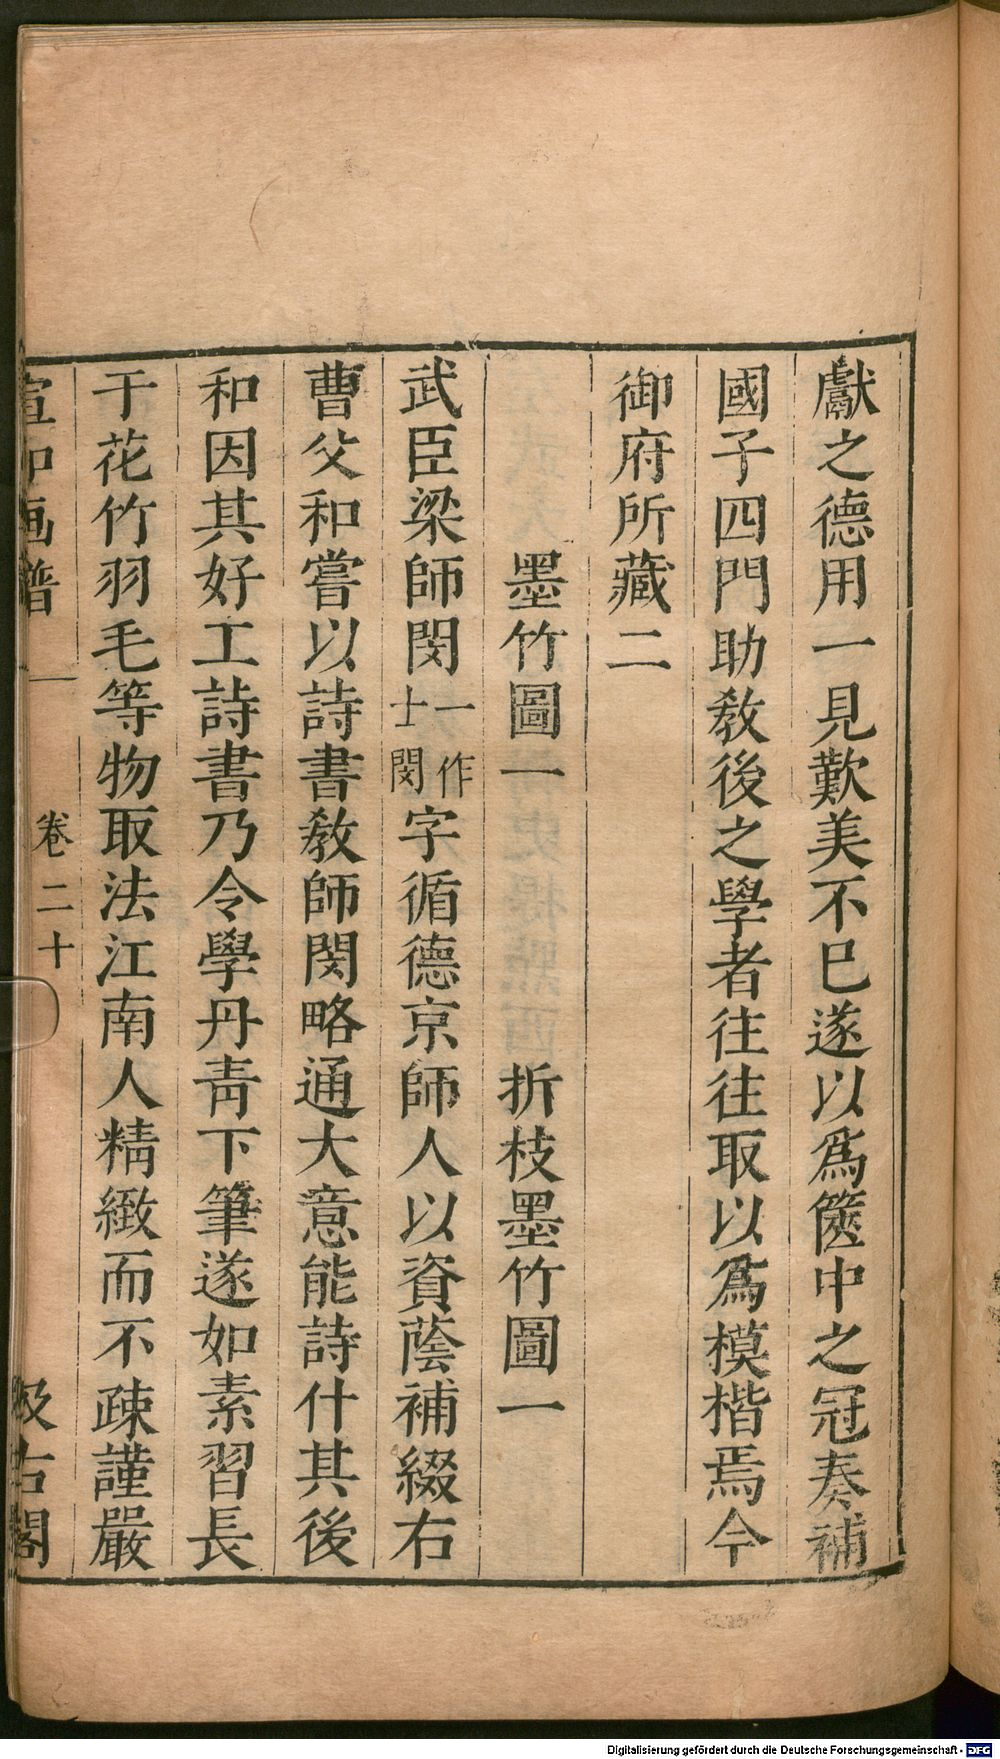 獻之德用一見歎美不已遂以爲篋中之冠奏補
國子四門助教後之學者往往取以爲模楷焉今
御府所藏二
墨竹圖一 折枝墨竹圖一
武臣梁師閔一作士閔字循德京師人以資蔭補綴右
曹父和嘗以詩書教師閔略通大意能詩什其後
和因其好工詩書乃令學丹靑下筆遂如素習長
于花竹羽毛等物取法江南人精緻而不疎謹嚴
宣和画譜 卷二十 汲古閣
Digitalisierung gefördert durch die Deutsche Forschungsgemeinschaft - DFG